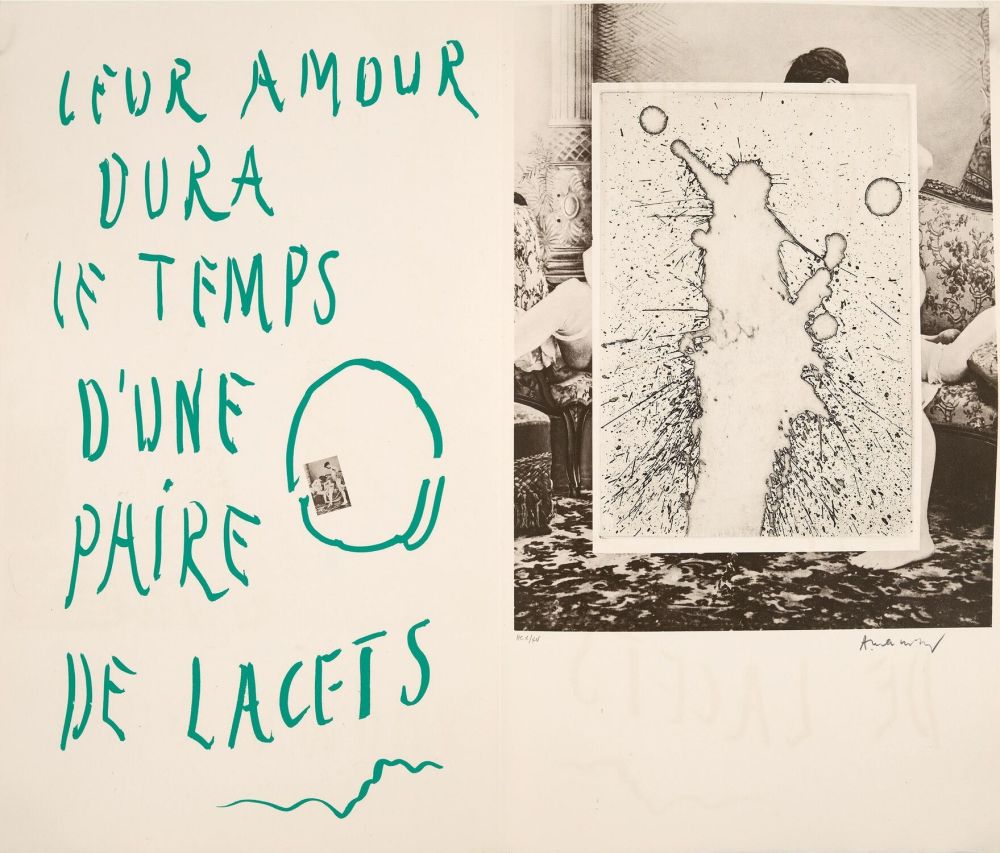 LEUR AMOUR
DURA
LE TEMPS
D'UNE
PAIRE
DE LACETS
DE LACETS